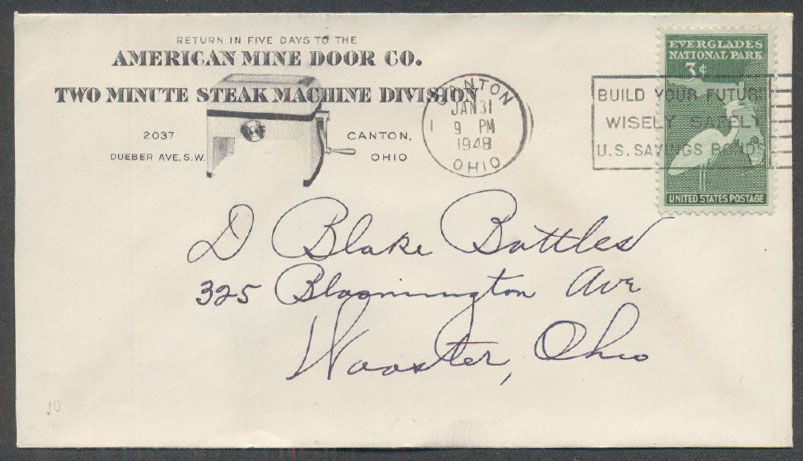 RETURN IN FIVE DAYS TO THE
AMERICAN MINE DOOR CO.
TWO MINUTE STEAK MACHINE DIVISION
2037
DUEBER AVE, S.W.
CANTON,
OHIO
CANTON
JAN 31
1 9 PM
1948
OHIO
BUILD YOUR FUTURE
WISELY SAFELY
U.S. SAVINGS BONDS
EVERGLADES
NATIONAL PARK
3¢
UNITED STATES POSTAGE
D Blake Battles
325 Bloomington Ave
Wooster, Ohio
10